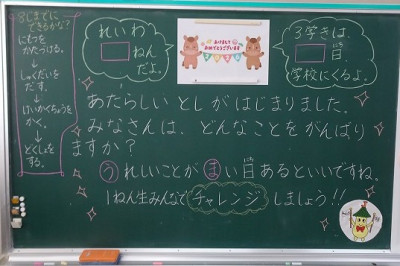 8じまでに
できるかな?
にもつを
かたづける。
↓
しゅくだいを
だす。
↓
けいかくちょうを
かく。
↓
どくしょを
する。
れいわ
□ねん
だよ。
あけまして
おめでとうございます
3学きは、
□日
学校にくるよ。
あたらしい としが はじまりました。
みなさんは、どんなことを がんばり
ますか?
うれしいことが まい日 あると いいですね。
1ねん生みんなで チャレンジ しましょう!!